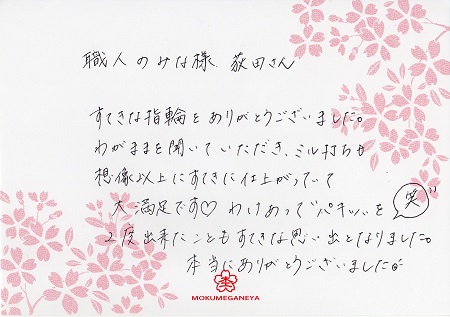 職人のみな様、荻田さん
すてきな指輪をありがとうございました。
わがままを聞いていただき、ミル打ちも
想像以上にすてきに仕上がっていて
大満足です♡ わけあって"パキッ"を 笑
2度出来たこともすてきな思い出となりました。
本当にありがとうございました
MOKUMEGANEYA